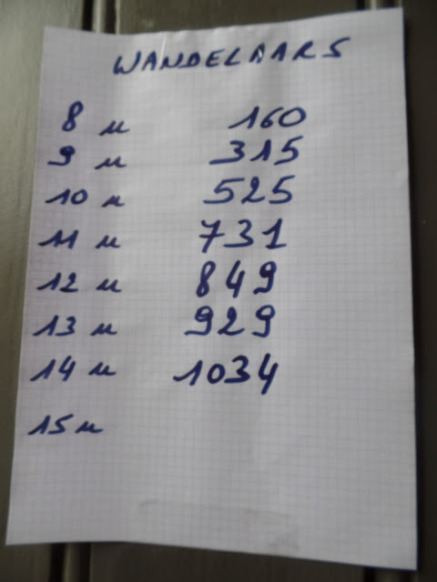 WANDELAARS
8 u 160
9 u 315
10 u 525
11 u 731
12 u 849
13 u 929
14 u 1034
15 u